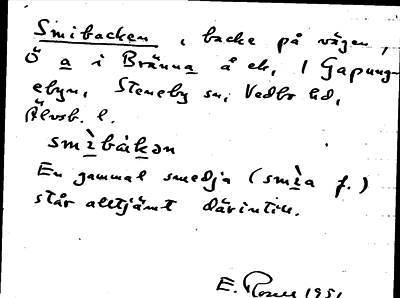 Smibacken, backe på vägen,
Ö a i Bränna å ek, 1 Gapung-
ebyn, Steneby sn, Vedbo hd,
Älvsb. l.
smìbàkən
En gammal smedja (smìa f.)
står alltjämt därintill.
E. 1951